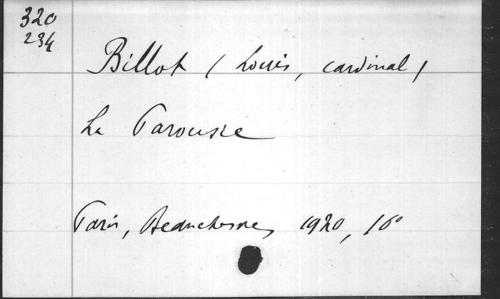 320
234
Billot (Louis, cardinal)
La Parousie
Paris, Beauchesne, 1920, 16°